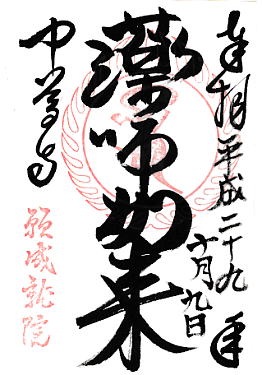 奉拝 平成二十九年
十月九日
薬師如来
中尊寺
願成就院